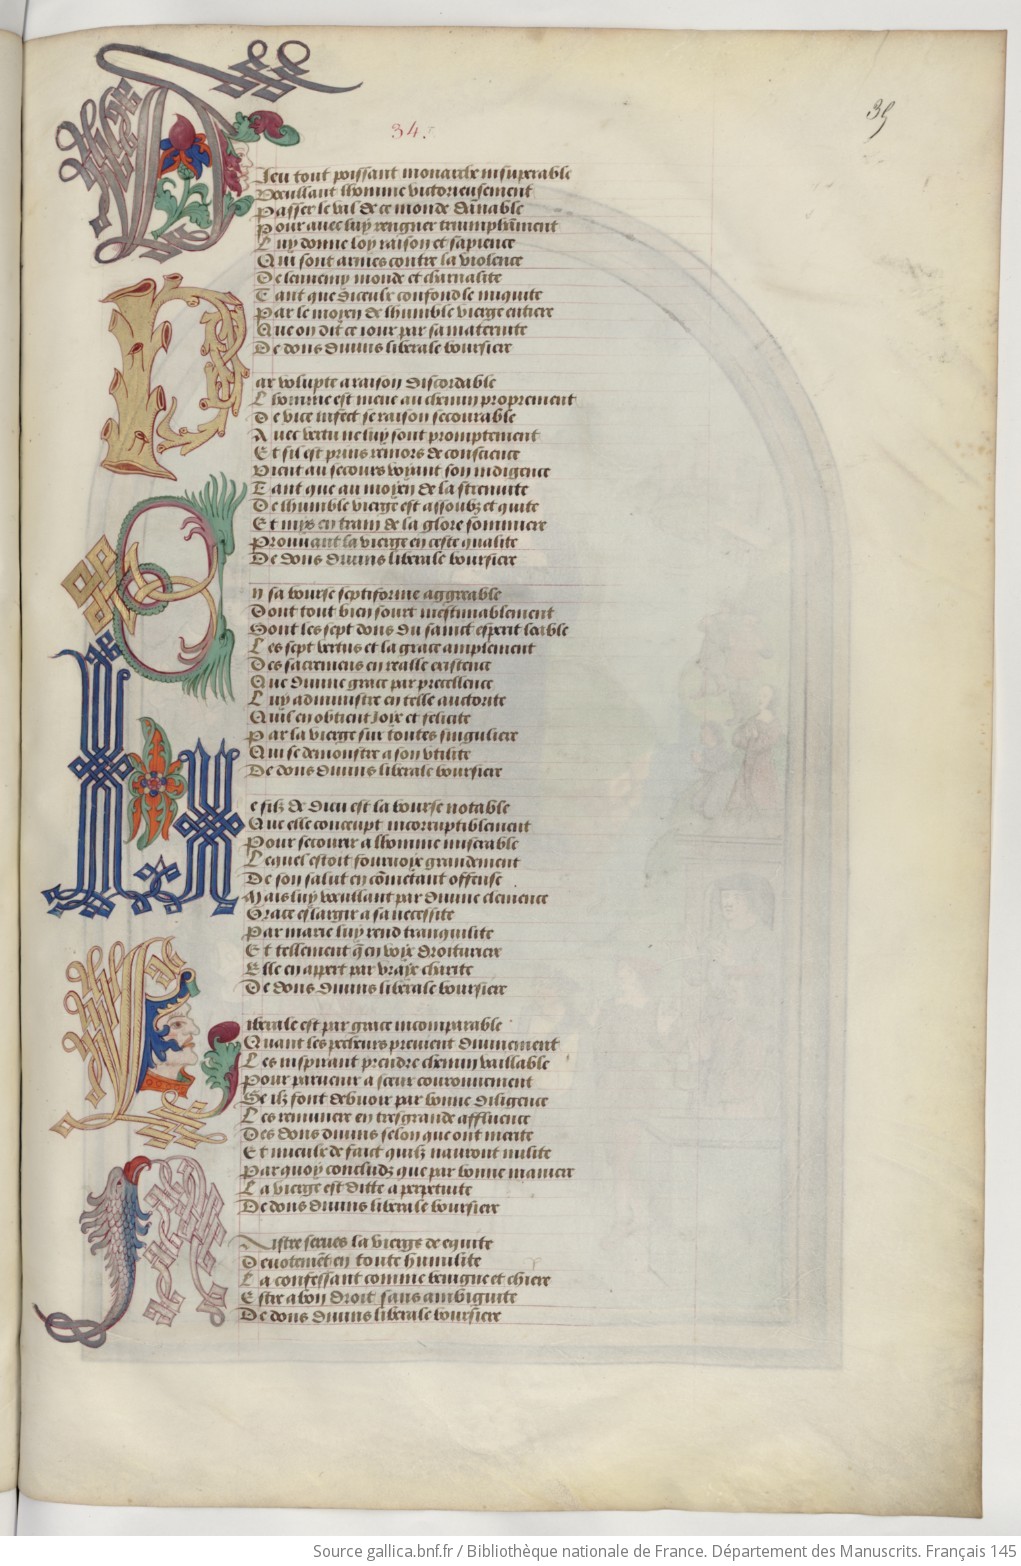 39
34.
Dieu tout poissant monarche insuperable
Voeullant lhomme victorieusement
Passer le val de ce monde dānable
Pour auec luy rengner triumphāment
Luy donne loy raison et sapience
Qui sont armes contre la violence
De lennemy monde et charnalite
Tant que diceulx confond le iniquite
Par le moyen de lhumble vierge entiere
Que on dit ce iour par sa maternite
De dons diuins liberale boursiere
Par volupte a raison discordable
Lhomme est mene au chemin proprement
De vice infect se raison secourable
Auec vertu ne luy sont promptement
Et sil est prins remors de conscience
Vient au secours voyant son indigence
Tant que au moyen de la strenuite
De lhumble vierge est assoubz et quite
Et mys en train de la glore sōmmiere
Prouuant la vierge en ceste qualite
De dons diuins liberale boursiere
En sa bourse septiforme aggreable
Dont tout bien sourt inestimablement
Sont les sept dons du sainct esperit loable
Les sept vertus et la grace amplement
Des sacremens en realle existence
Que diuine grace par precellence
Luy administre en telle auctorite
Quil en obtient Joye et felicite
Par la vierge sur toutes singuliere
Qui se demonstre a son vtilite
De dons diuins liberale boursiere
Le filz de dieu est la bourse notable
Que elle conceupt incorruptiblement
Pour secourir a lhomme miserable
Lequel estoit fouruoye grandement
De son salut en cōmetant offense
Mais luy voeullant par diuine clemence
Grace eslargir a sa necessite
Par marie luy rend tranquilite
Et tellement q̄ en voye droituriere
Elle en appert par vraye charite
De dons diuins liberale boursiere
Liberale est par grace incomparable
Quant les pecheurs preuient diuinement
Les inspirant prendre chemin vaillable
Pour paruenir a sceur couronnement
Se ilz font debuoir par bonne diligence
Les remunere en tresgrande affluence
Des dons diuins selon que ont merite
Et mieulx de faict quilz nauront milite
Parquoy concludz que par bonne maniere
La vierge est ditte a perpetuite
De dons diuins liberale boursiere
Nistre serues la vierge de equite
Deuotemēt en toute humilite
La confessant comme benigne et chiere
Estre a bon droit sans ambiguite
De dons diuins liberale boursiere
Source gallica.bnf.fr / Bibliothèque nationale de France. Département des Manuscrits. Français 145